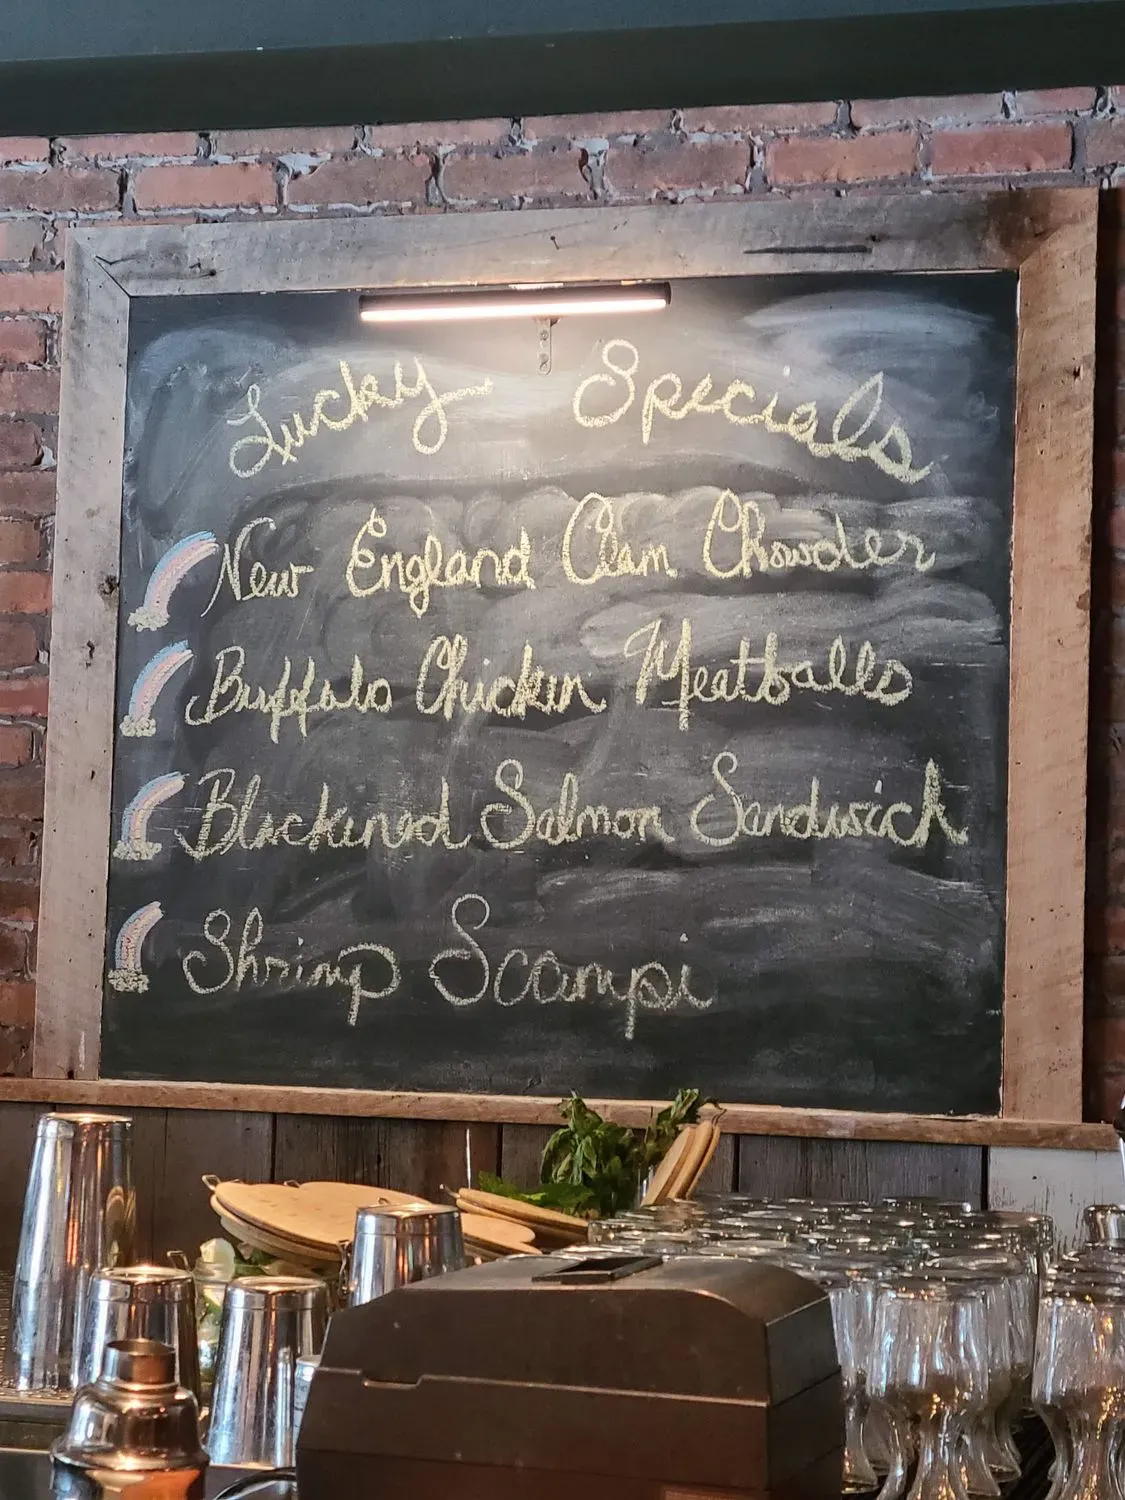 Lucky Specials
New England Clam Chowder
Buffalo Chicken Meatballs
Blackened Salmon Sandwich
Shrimp Scampi